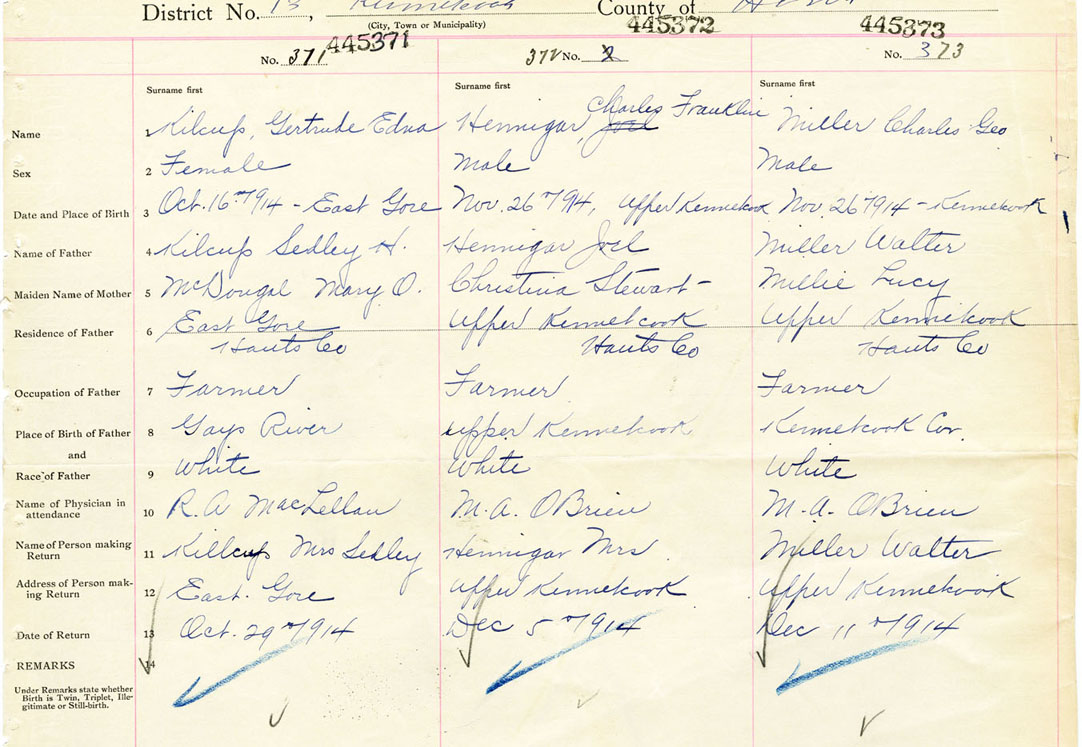 District No. 13, Kennekook County of Hants
(City, Town or Municipality)
445371 445372 445373
No. 371 372 No. No. 373
Surname first Surname first Surname first
Name 1 Kilcup, Gertrude Edna Hennigar, Joel Charles Franklin Miller Charles Geo
Sex 2 Female Male Male
Date and Place of Birth 3 Oct. 16th 1914 - East Gore Nov. 26th 1914, Upper Kennekook Nov. 26 1914 - Kennekook
Name of Father 4 Kilcup Sedley H. Hennigar Joel Miller Walter
Maiden Name of Mother 5 McDougal Mary O. Christina Stewart - Millie Lucy
Residence of Father 6 East Gore Upper Kennetcook Upper Kennekook
Hants Co Hants Co Hants Co
Occupation of Father 7 Farmer Farmer Farmer
Place of Birth of Father 8 Gays River Upper Kennekook Kennekook Cor.
and
Race of Father 9 White White White
Name of Physician in
attendance 10 R. A MacLellan M. A. OBrien M. A. OBrien
Name of Person making
Return 11 Killcup Mrs Sedley Hennigar Mrs Miller Walter
Address of Person mak-
ing Return 12 East. Gore Upper Kennekook Upper Kennekook
Date of Return 13 Oct. 29th 1914 Dec 5th 1914 Dec 11th 1914
REMARKS 14
Under Remarks state whether
Birth is Twin, Triplet, Ille-
gitimate or Still-birth.